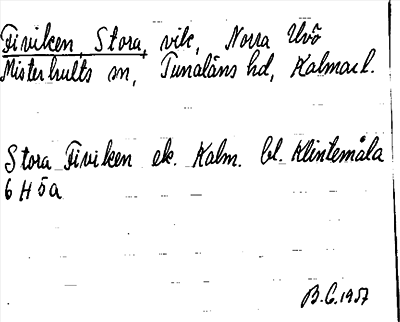 Fiviken, Stora, vik, Norra Uvö
Misterhults sn, Tunaläns hd, Kalmar l.
Stora Fiviken ek. Kalm. bl. Klintemåla
6 H 5 a
B.C. 1957